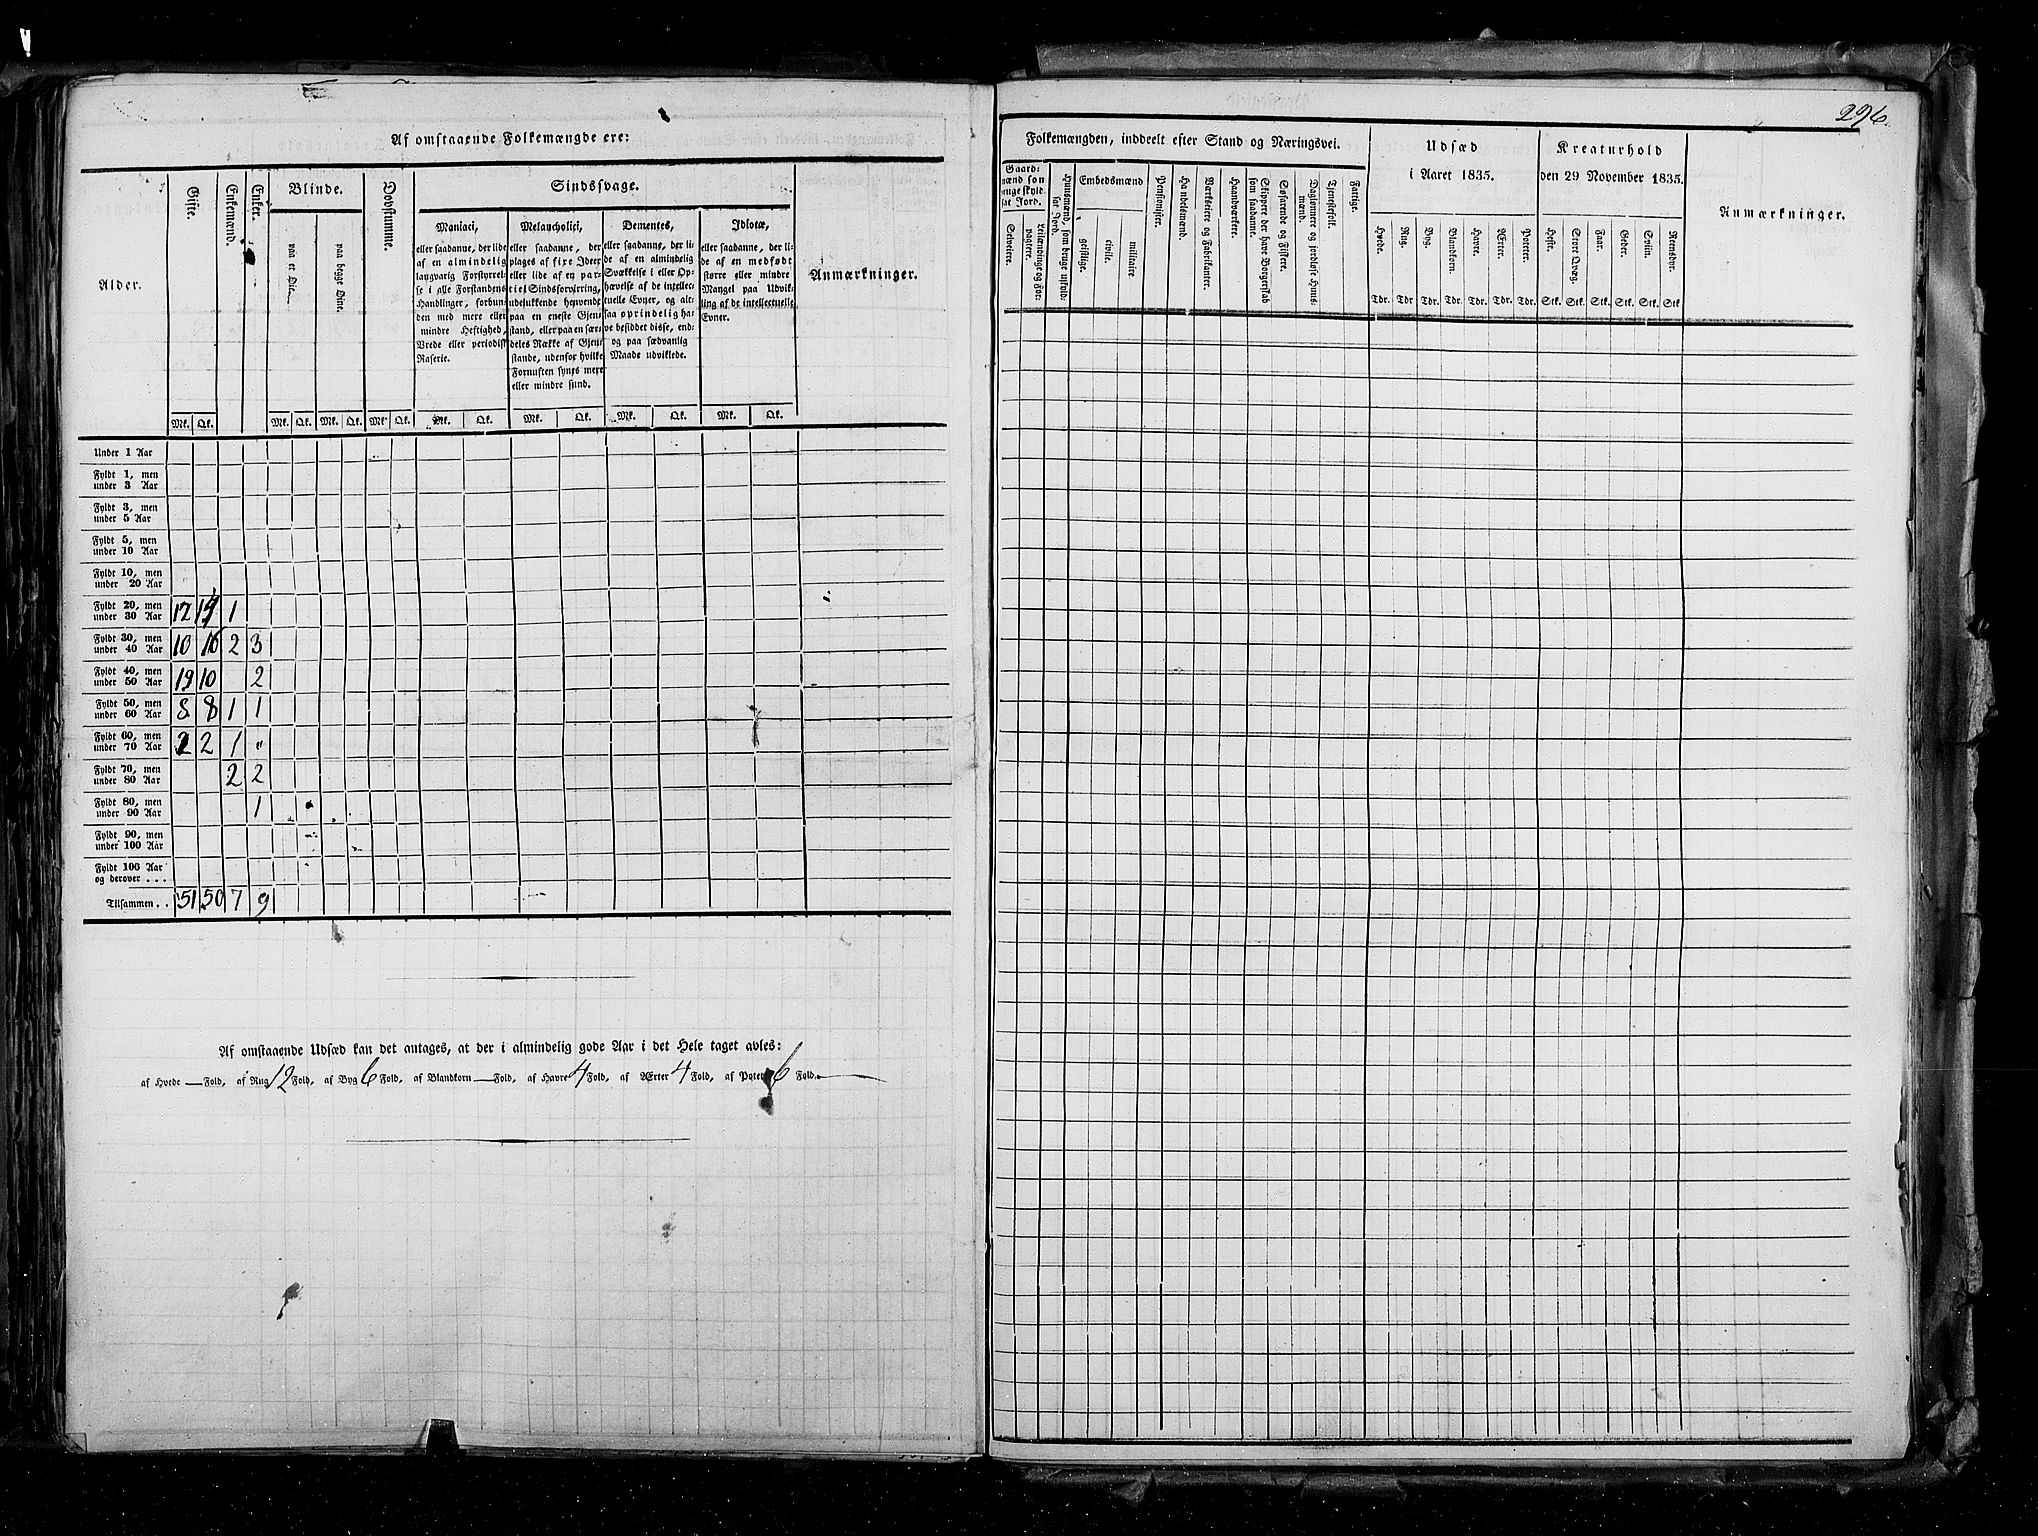 Af omstaaende Folkemængde ere:
Alder.
Gifte.
Enkemænd.
Enker.
Blinde.
paa et Øie.
paa begge Øine.
Døvstumme.
Sindssvage.
Maniaci,
eller saadanne, der lide
af en almindelig
langvarig Forstyrrel-
se i alle Forstandens
Handlinger, forbun-
den med mere eller
mindre Heftighed,
Vrede eller periodisk
Raserie.
Melancholici,
eller saadanne, der
plages af fixe Ideer
eller lide af en par-
tiel Sindsforvirring,
udelukkende henvendt
paa en eneste Gjen-
stand, eller paa en sær-
deles Række af Gjen-
stande, udenfor hvilke
Fornuften synes mere
eller mindre sund.
Dementes,
eller saadanne, der li-
de af en almindelig
Svækkelse i eller Op-
hævelse af de intellec-
tuelle Evner, og alt-
saa oprindelig ha-
ve besiddet disse, end-
og paa sædvanlig
Maade udviklede.
Idiotæ,
eller saadanne, der li-
de af en medfødt
større eller mindre
Mangel paa Udvik-
ling af de intellectuelle
Evner.
Anmærkninger.
Mk. Qk. Mk. Qk. Mk. Qk. Mk. Qk. Mk. Qk. Mk. Qk. Mk. Qk. Mk. Qk.
Under 1 Aar
Fyldt 1, men
under 3 Aar
Fyldt 3, men
under 5 Aar
Fyldt 5, men
under 10 Aar
Fyldt 10, men
under 20 Aar
Fyldt 20, men
under 30 Aar 12 1
Fyldt 30, men
under 40 Aar 10 16 2 3
Fyldt 40, men
under 50 Aar 19 10 2
Fyldt 50, men
under 60 Aar 8 8 1 1
Fyldt 60, men
under 70 Aar 2 2 1 "
Fyldt 70, men
under 80 Aar 2 2
Fyldt 80, men
under 90 Aar 1
Fyldt 90, men
under 100 Aar
Fyldt 100 Aar
og derover . . .
Tilsammen . . 51 50 7 9
Af omstaaende Udsæd kan det antages, at der i almindelig gode Aar i det Hele taget avles:
af Hvede — Fold, af Rug 12 Fold, af Byg 6 Fold, af Blandkorn — Fold, af Havre 4 Fold, af Ærter 4 Fold, af Poteter 6 Fold.
296.
Folkemængden, inddeelt efter Stand og Næringsvei.
Gaard-
mænd som
bruge skyld-
sat Jord.
Selveiere.
Leilændinge og For-
pagtere.
Huusmænd, som bruge uskyld-
sat Jord.
Embedsmænd
geistlige.
civile.
militaire
Pensionister.
Handelsmænd.
Værkseiere og Fabrikanter.
Haandværkere.
Skippere der have Borgerskab
som saadanne.
Søfarende og Fiskere.
Daglønnere og jordløse Huus-
mænd.
Tjenestefolk.
Fattige.
Udsæd
i Aaret 1835.
Hvede.
Rug.
Byg.
Blandkorn.
Havre.
Ærter.
Poteter.
Tdr. Tdr Tdr. Tdr. Tdr. Tdr. Tdr.
Kreaturhold
den 29 November 1835.
Heste.
Stort Qvæg.
Faar.
Geder.
Sviin.
Reensdyr.
Stk. Stk. Stk. Stk. Stk. Stk
Anmærkninger.